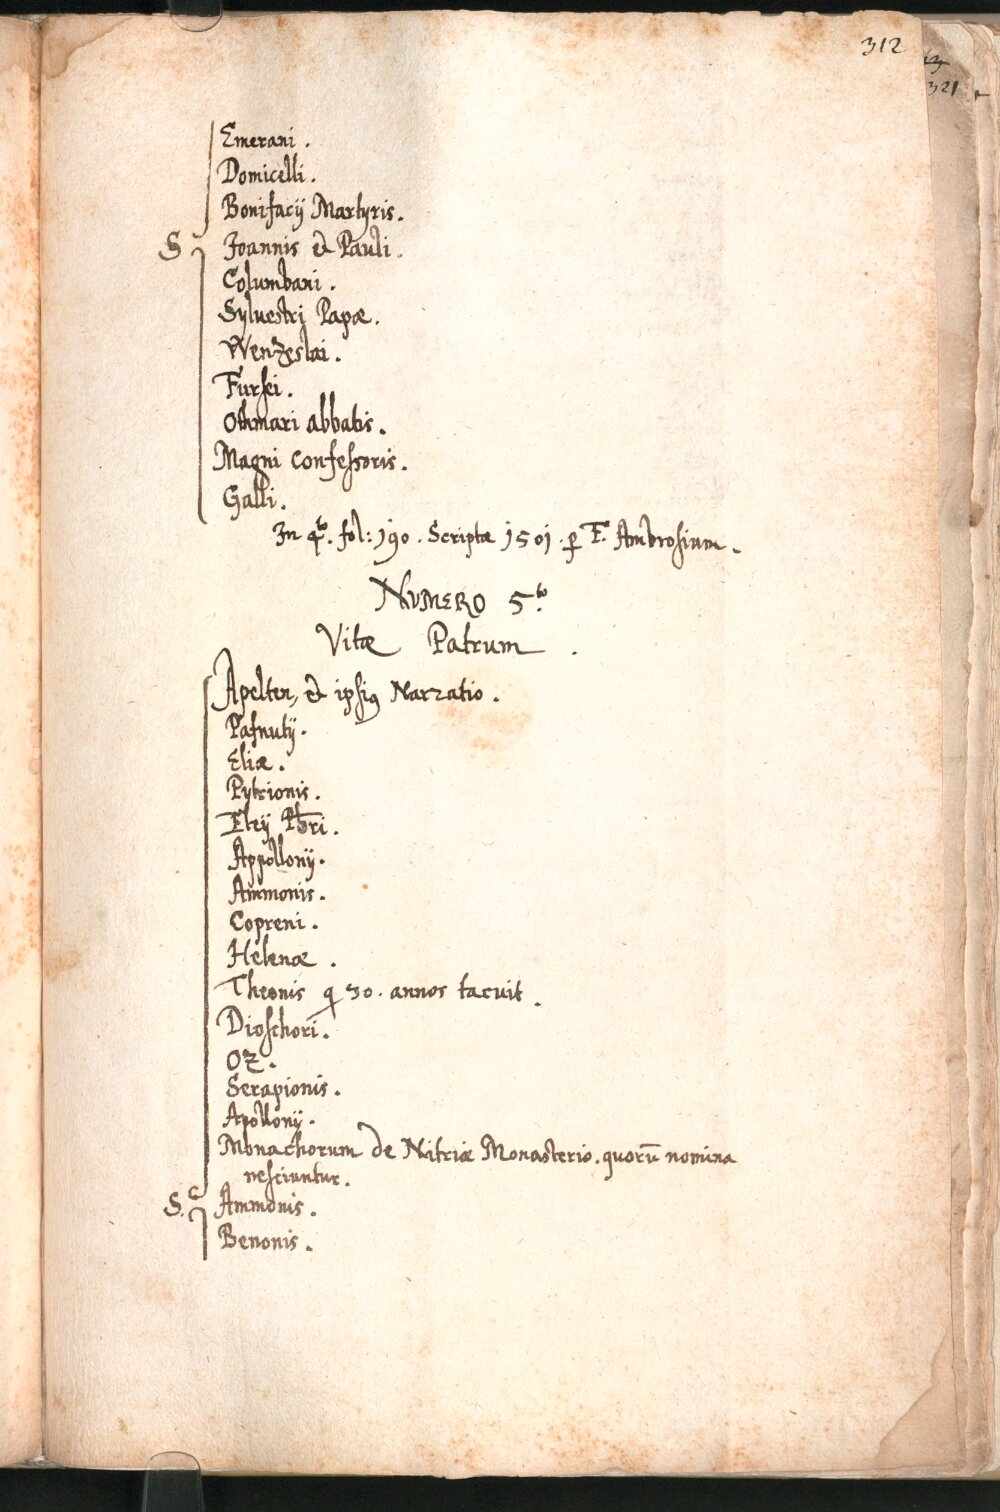 312
321
Emerani.
Domicelli.
Bonifacij Martyris.
S Joannis et Pauli.
Columbani.
Sylvestri Papæ.
Wenzeslai.
Fursei.
Othmari abbatis.
Magni confessoris.
Galli.
In 4to. fol: 190. Scriptæ 1501. p F. Ambrosium.
NUMERO 5to.
Vitæ Patrum.
Apelten, et ipsius Narratio.
Pafnutij.
Eliæ.
Pytrionis.
Eleij Pbri.
Appollonij.
Ammonis.
Copreni.
Helenæ.
Theonis q 30. annos tacuit.
Dioschori.
Oz.
Serapionis.
Apollonij.
Monachorum de Nitriæ Monasterio. quorū nomina
nesciuntur.
S. Ammonis.
Benonis.